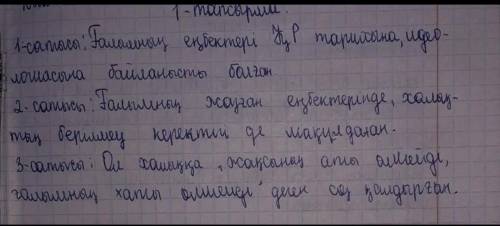 1-тапсырма.
1-сатысы: Ғалымның еңбектері ҚР тарихына, идео-
логиясына байланысты болған
2-сатысы: Ғалымның жазған еңбектерінде, халық-
тың берілмеу керектігін де мақұлдаған.
3-сатысы: Ол халыққа „жақсының аты өлмейді,
ғалымның хаты өлмейді" деген сөз қалдырған.